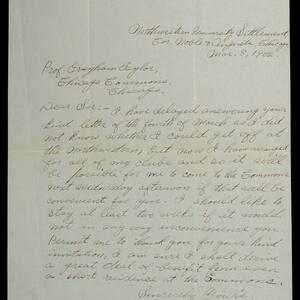 Northwestern University Settlement
Cor. Noble & Augusta, Chicago
Mar. 8, 1902.
Prof. Graham Taylor,
Chicago Commons,
Chicago.
Dear Sir:- I have delayed answering your
kind letter of the fourth of March as I did
not know whether I could get off at
the Northwestern, but now I have arranged
for all of my clubs and so it will
be possible for me to come to the Commons
next Wednesday afternoon if that will be
convenient for you. I should like to
stay at least two weeks if it would
not in any way inconvenience you.
Permit me to thank you for your kind
invitation, I am sure I shall derive
a great deal of benefit from even
a short residence at the Commons.
Sincerely Yours